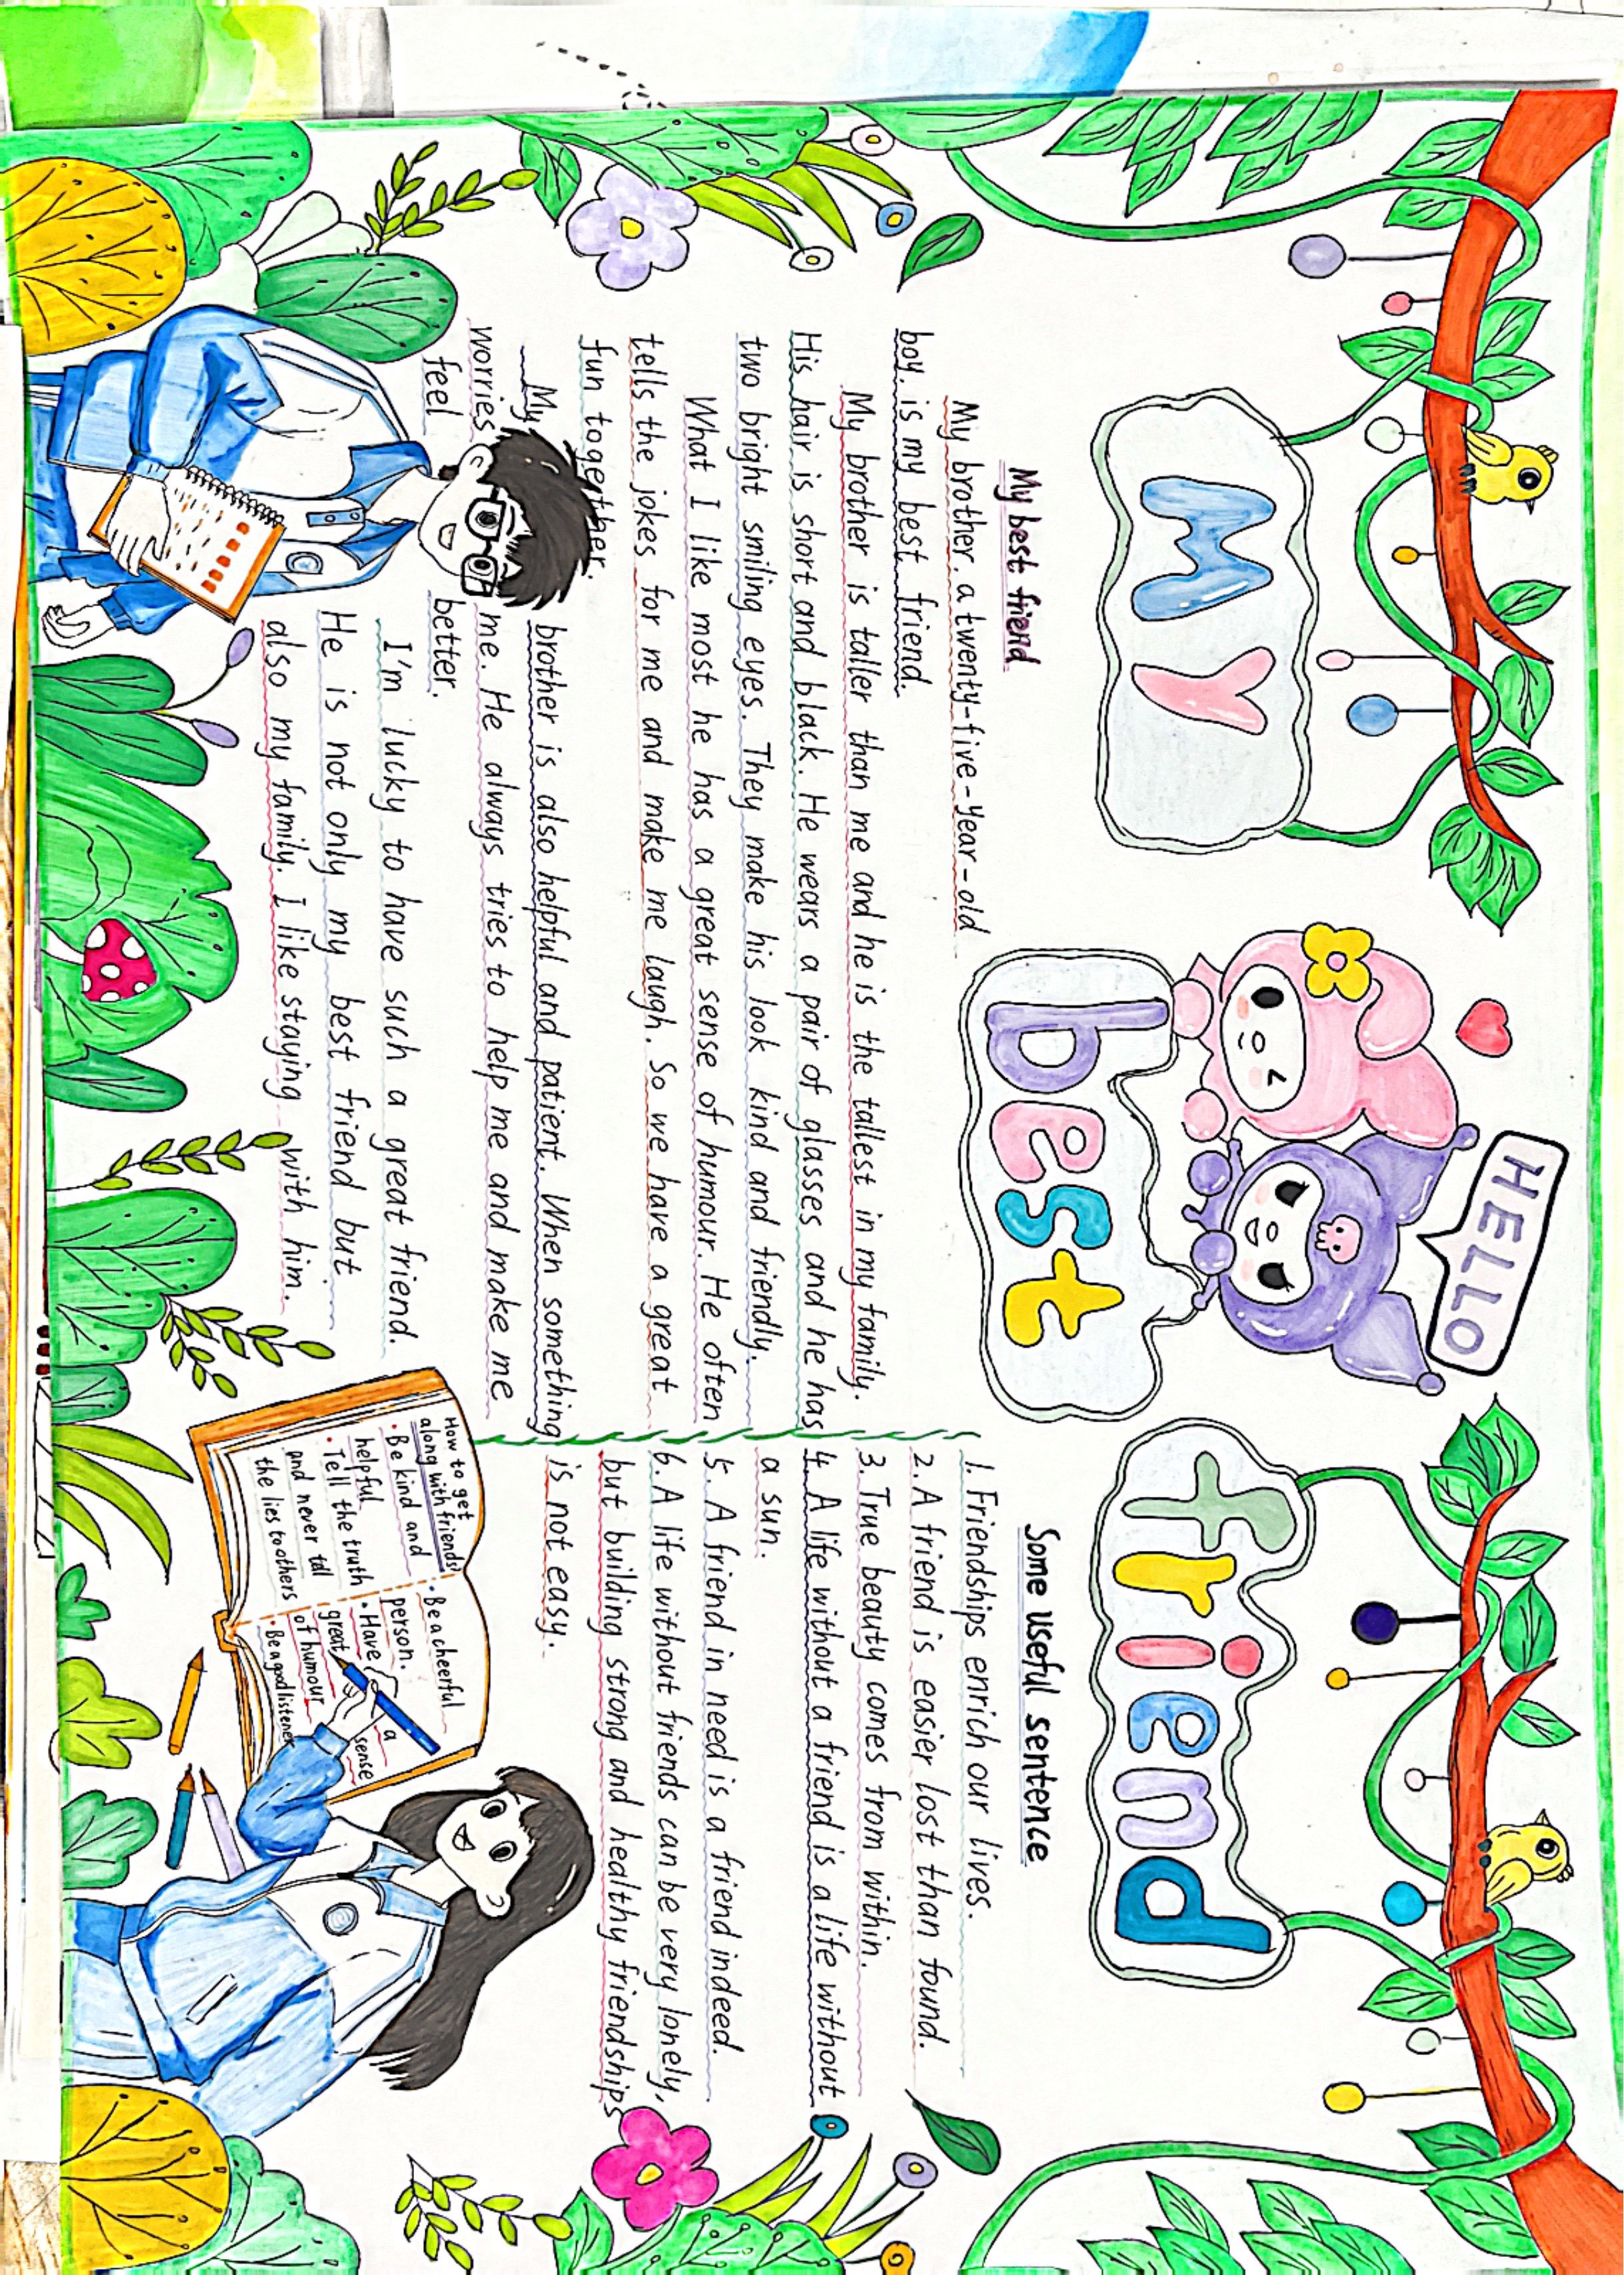 HELLO
My best friend
My best friend
My brother. a twenty-five-year-old
boy. is my best friend.
My brother is taller than me and he is the tallest in my family.
His hair is short and black. He wears a pair of glasses and he has
two bright smiling eyes. They make his look kind and friendly.
What I like most he has a great sense of humour. He often
tells the jokes for me and make me laugh. So we have a great
fun together.
My brother is also helpful and patient. When something
worries me. He always tries to help me and make me
feel better.
I'm lucky to have such a great friend.
He is not only my best friend but
also my family. I like staying with him.
Some useful sentence
1. Friendships enrich our lives.
2. A friend is easier lost than found.
3. True beauty comes from within.
4. A life without a friend is a life without
a sun.
5. A friend in need is a friend indeed.
6. A life without friends can be very lonely,
but building strong and healthy friendships
is not easy.
How to get
along with friends
• Be kind and
helpful
• Tell the truth
and never tell
the lies to others
• Be a cheerful
person.
• Have a
great sense
of humour
• Be a good listener